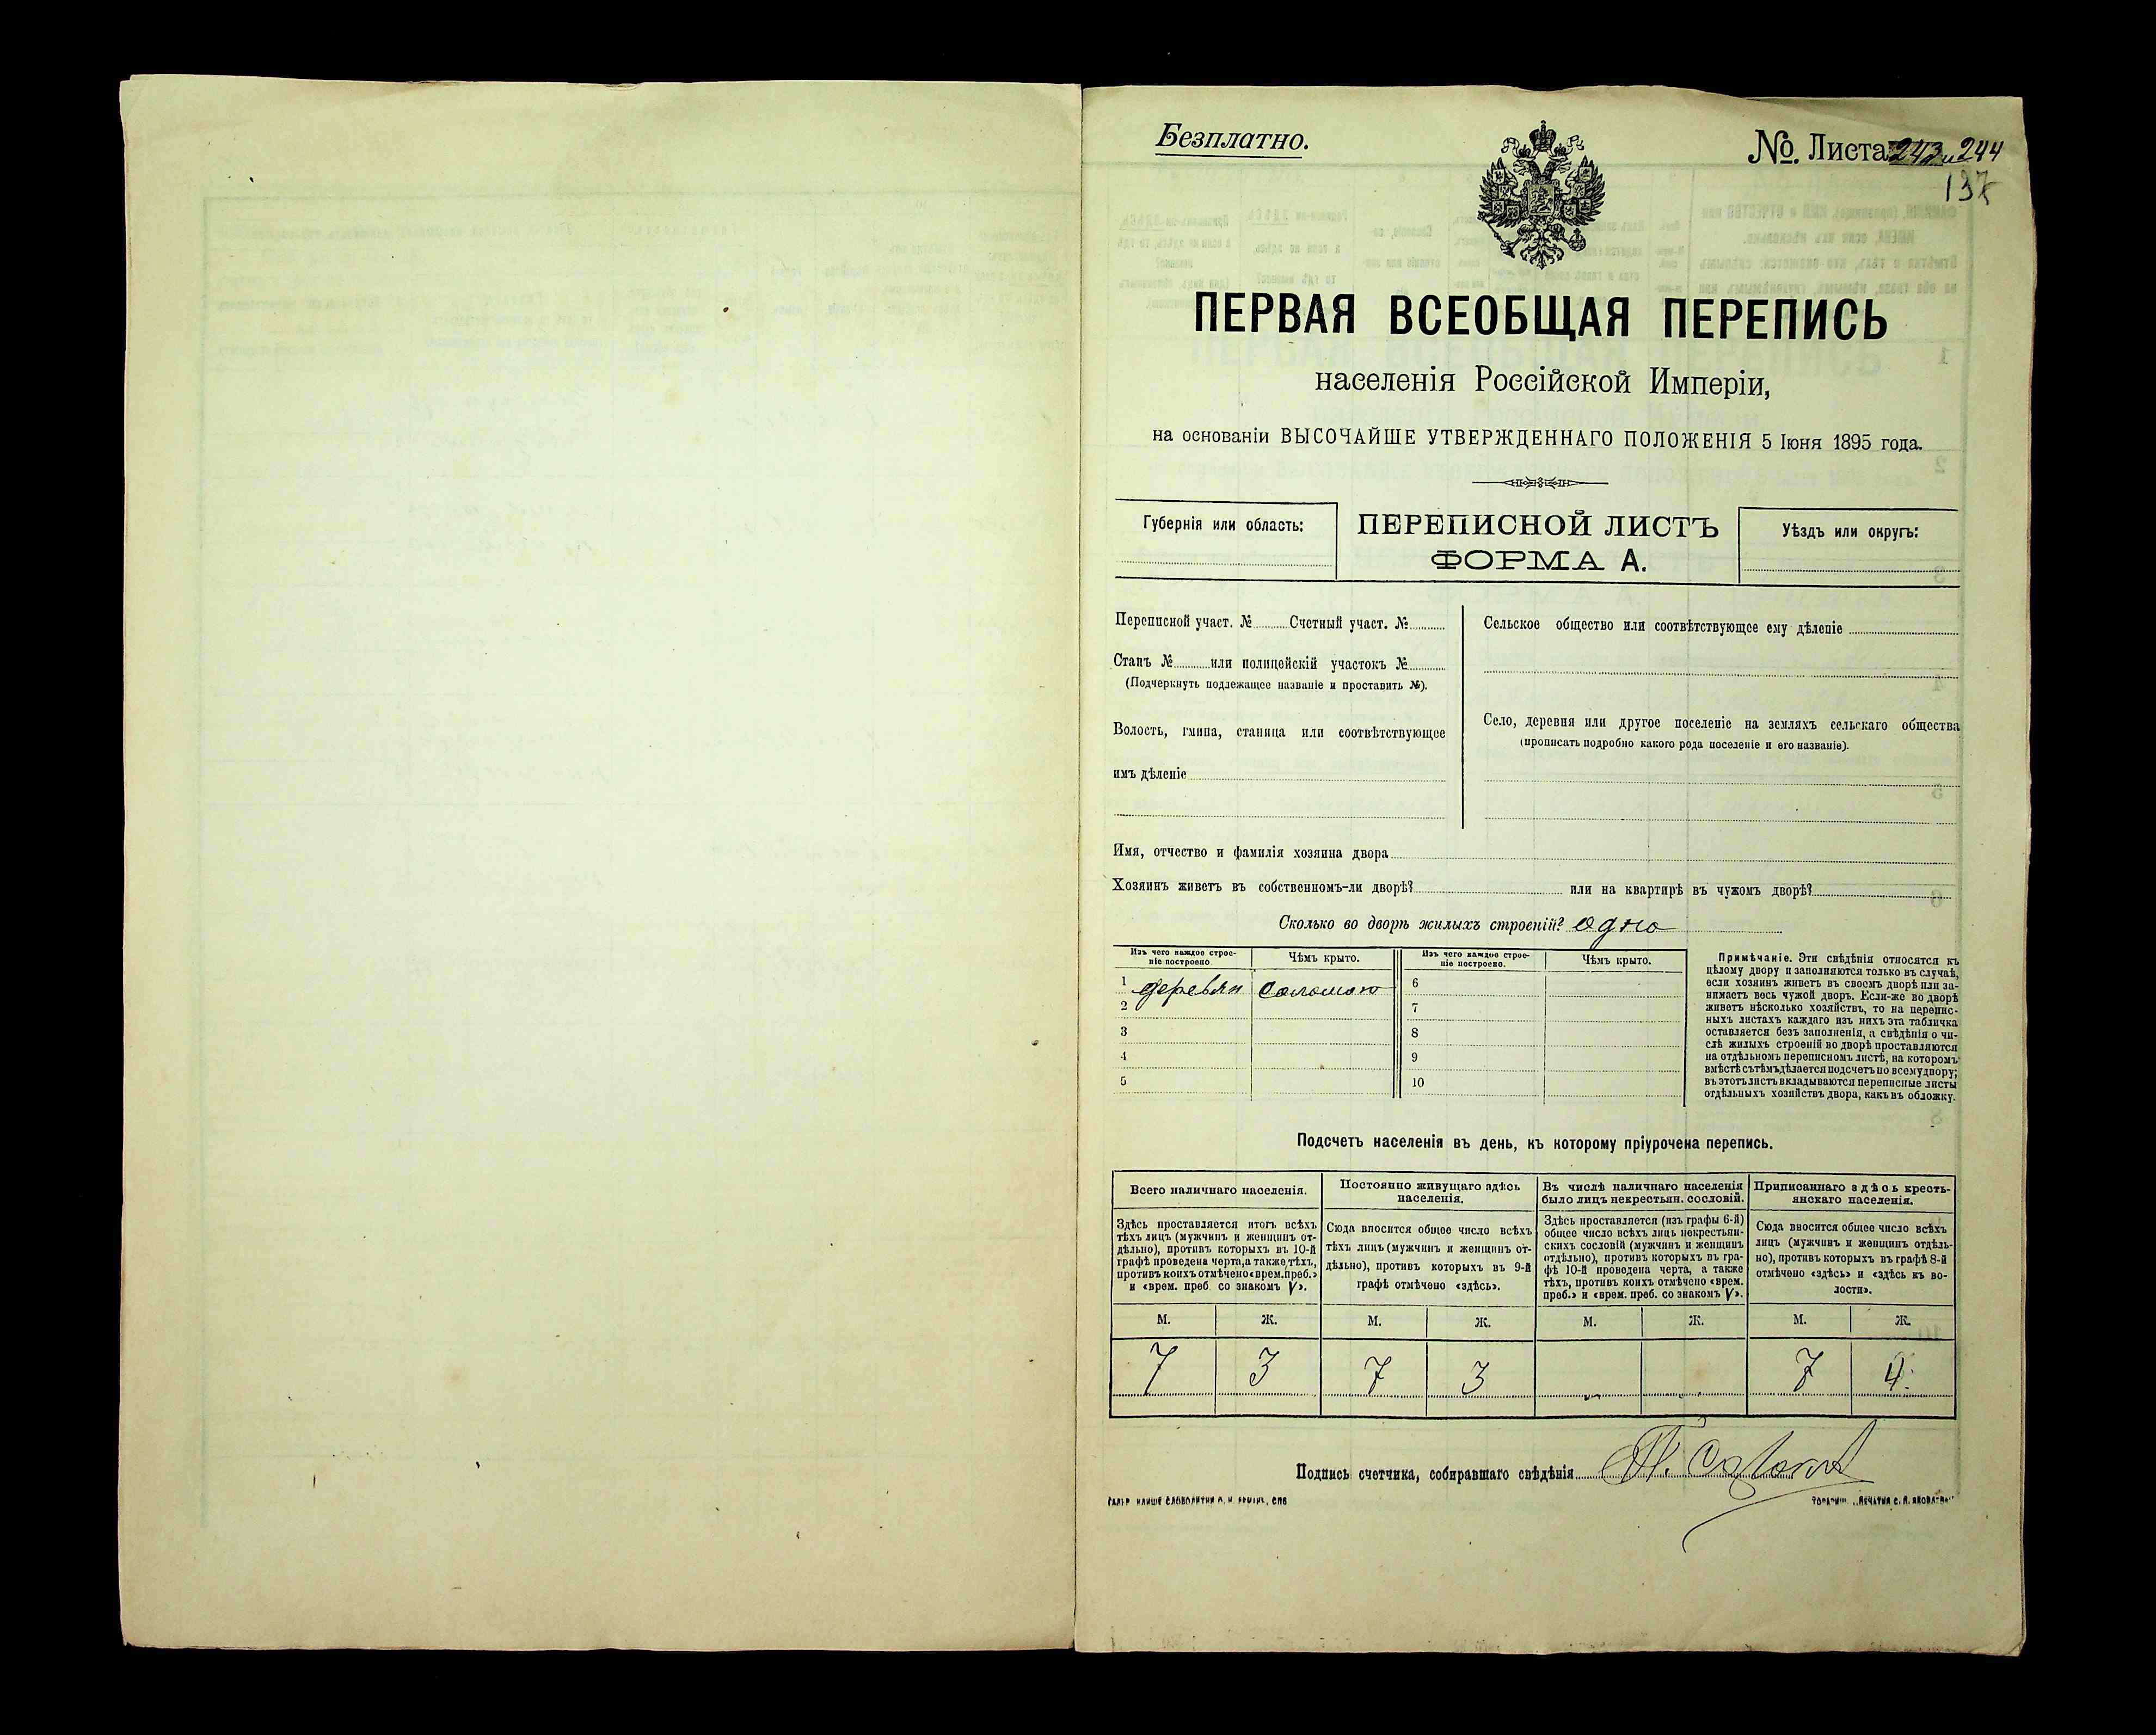 Безплатно.
№. Листа 243 и 244
137
ПЕРВАЯ ВСЕОБЩАЯ ПЕРЕПИСЬ
населенія Россійской Имперіи,
на основаніи ВЫСОЧАЙШЕ УТВЕРЖДЕННАГО ПОЛОЖЕНІЯ 5 Іюня 1895 года.
Губернія или область:
ПЕРЕПИСНОЙ ЛИСТЪ
ФОРМА А.
Уѣздъ или округъ:
Переписной участ. № Счетный участ. №
Станъ № или полицейскій участокъ №
(Подчеркнуть подлежащее названіе и проставить №).
Волость, гмина, станица или соотвѣтствующее
имъ дѣленіе
Сельское общество или соотвѣтствующее ему дѣленіе
Село, деревня или другое поселеніе на земляхъ сельскаго общества
(прописать подробно какого рода поселеніе и его названіе).
Имя, отчество и фамилія хозяина двора
Хозяинъ живетъ въ собственномъ-ли дворѣ? или на квартирѣ въ чужомъ дворѣ?
Сколько во дворѣ жилыхъ строеній? одно
Изъ чего каждое строе-
ніе построено.
Чѣмъ крыто.
Изъ чего каждое строе-
ніе построено.
Чѣмъ крыто.
1 деревян соломою
2
3
4
5
6
7
8
9
10
Примѣчаніе. Эти свѣдѣнія относятся къ
цѣлому двору и заполняются только въ случаѣ,
если хозяинъ живетъ въ своемъ дворѣ или за-
нимаетъ весь чужой дворъ. Если-же во дворѣ
живетъ нѣсколько хозяйствъ, то на перепис-
ныхъ листахъ каждаго изъ нихъ эта табличка
оставляется безъ заполненія, а свѣдѣнія о чи-
слѣ жилыхъ строеній во дворѣ проставляются
на отдѣльномъ переписномъ листѣ, на которомъ
вмѣстѣ сътѣмъ дѣлается подсчетъ по всему двору;
въ этотъ листъ вкладываются переписные листы
отдѣльныхъ хозяйствъ двора, какъ въ обложку.
Подсчетъ населенія въ день, къ которому пріурочена перепись.
Всего наличнаго населенія.
Здѣсь проставляется итогъ всѣхъ
тѣхъ лицъ (мужчинъ и женщинъ от-
дѣльно), противъ которыхъ въ 10-й
графѣ проведена черта, а также тѣхъ,
противъ коихъ отмѣчено «врем. преб.»
и «врем. преб. со знакомъ V».
Постоянно живущаго здѣсь
населенія.
Сюда вносится общее число всѣхъ
тѣхъ лицъ (мужчинъ и женщинъ от-
дѣльно), противъ которыхъ въ 9-й
графѣ отмѣчено «здѣсь».
Въ числѣ наличнаго населенія
было лицъ некрестьян. сословій.
Здѣсь проставляется (изъ графы 6-й)
общее число всѣхъ лицъ некрестьян-
скихъ сословій (мужчинъ и женщинъ
отдѣльно), противъ которыхъ въ гра-
фѣ 10-й проведена черта, а также
тѣхъ, противъ коихъ отмѣчено «врем.
преб.» и «врем. преб. со знакомъ V».
Приписаннаго здѣсь кресть-
янскаго населенія.
Сюда вносится общее число всѣхъ
лицъ (мужчинъ и женщинъ отдѣль-
но), противъ которыхъ въ графѣ 8-й
отмѣчено «здѣсь» и «здѣсь къ во-
лости».
М. Ж. М. Ж. М. Ж. М. Ж.
7 3 7 3 7 4
Подпись счетчика, собиравшаго свѣдѣнія